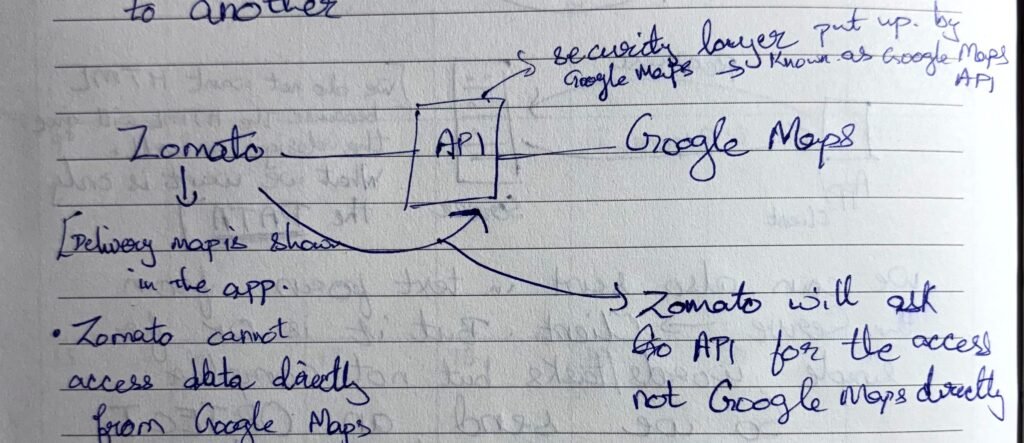 to another
security layer put up by
Google Maps → Known as Google Maps
API
Zomato
API
Google Maps
[Delivery map is shown
in the app.
Zomato will ask
to API for the access
not Google Maps directly
• Zomato cannot
access data directly
from Google Maps